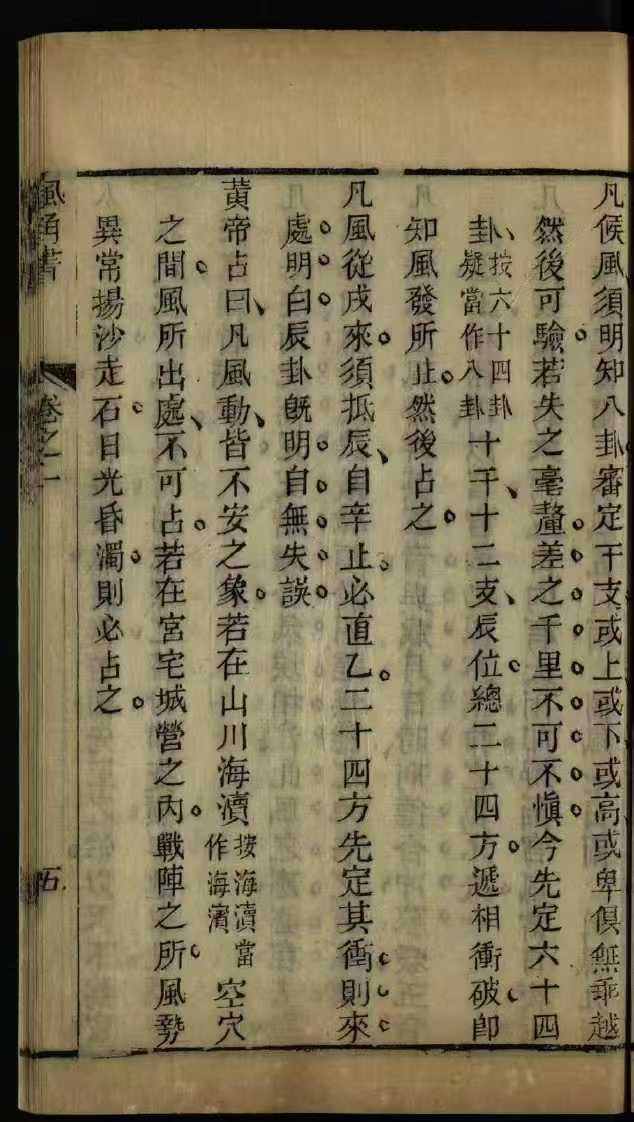 凡候風須明知八卦審定干支或上或下或高或卑俱無乖越
然後可驗若失之毫釐差之千里不可不慎今先定六十四
卦按六十四卦疑當作八卦十干十二支辰位總二十四方遞相衝破即
知風發所止然後占之
凡風從戌來須抵辰自辛止必直乙二十四方先定其衝則來
處明白辰卦既明自無失誤
黃帝占曰凡風動皆不安之象若在山川海瀆按海瀆當作海濱空穴
之間風所出處不可占若在宮宅城營之內戰陣之所風勢
異常揚沙走石日光昏濁則必占之
風角書
卷之一
五